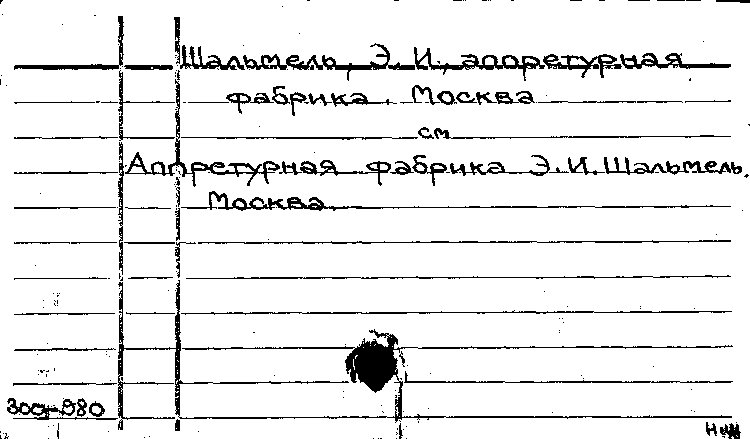 Шальмель, Э. И., аппретурная
фабрика. Москва
см
Аппретурная фабрика Э.И.Шальмель.
Москва.